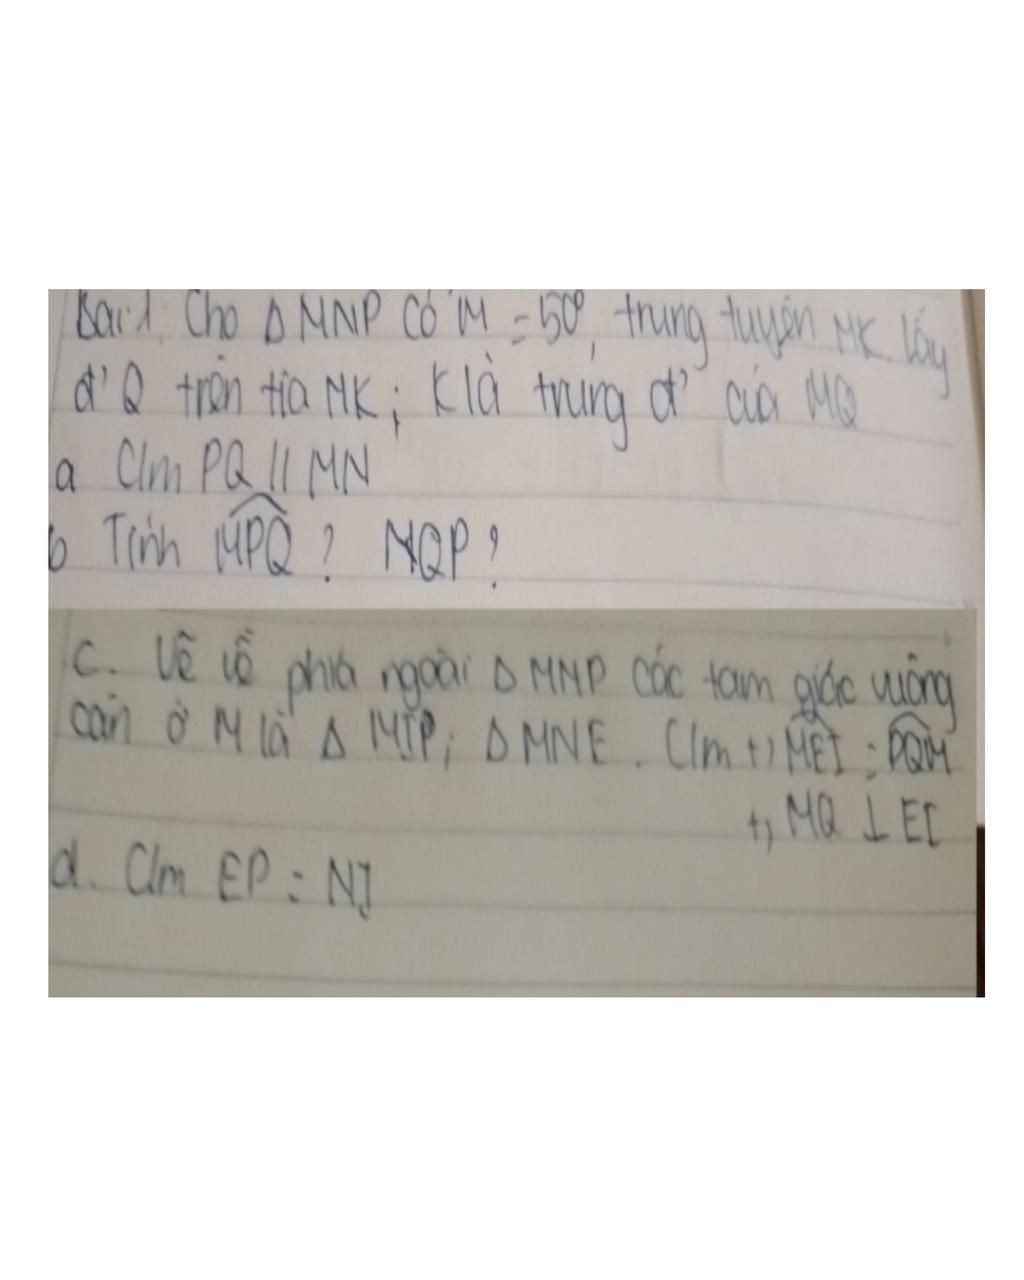 Bài 1: Cho Δ MNP có M̂ = 50°, trung tuyến MK. Lấy
đ' Q trên tia MK; K là trung đ' của MQ
a C/m PQ // MN
b Tính MPQ? NQP?
c. Vẽ về phía ngoài Δ MNP các tam giác vuông
cân ở M là Δ MIP; Δ MNE. C/m +) MEI = PQM
+) MQ ⊥ EI
d. C/m EP = NI